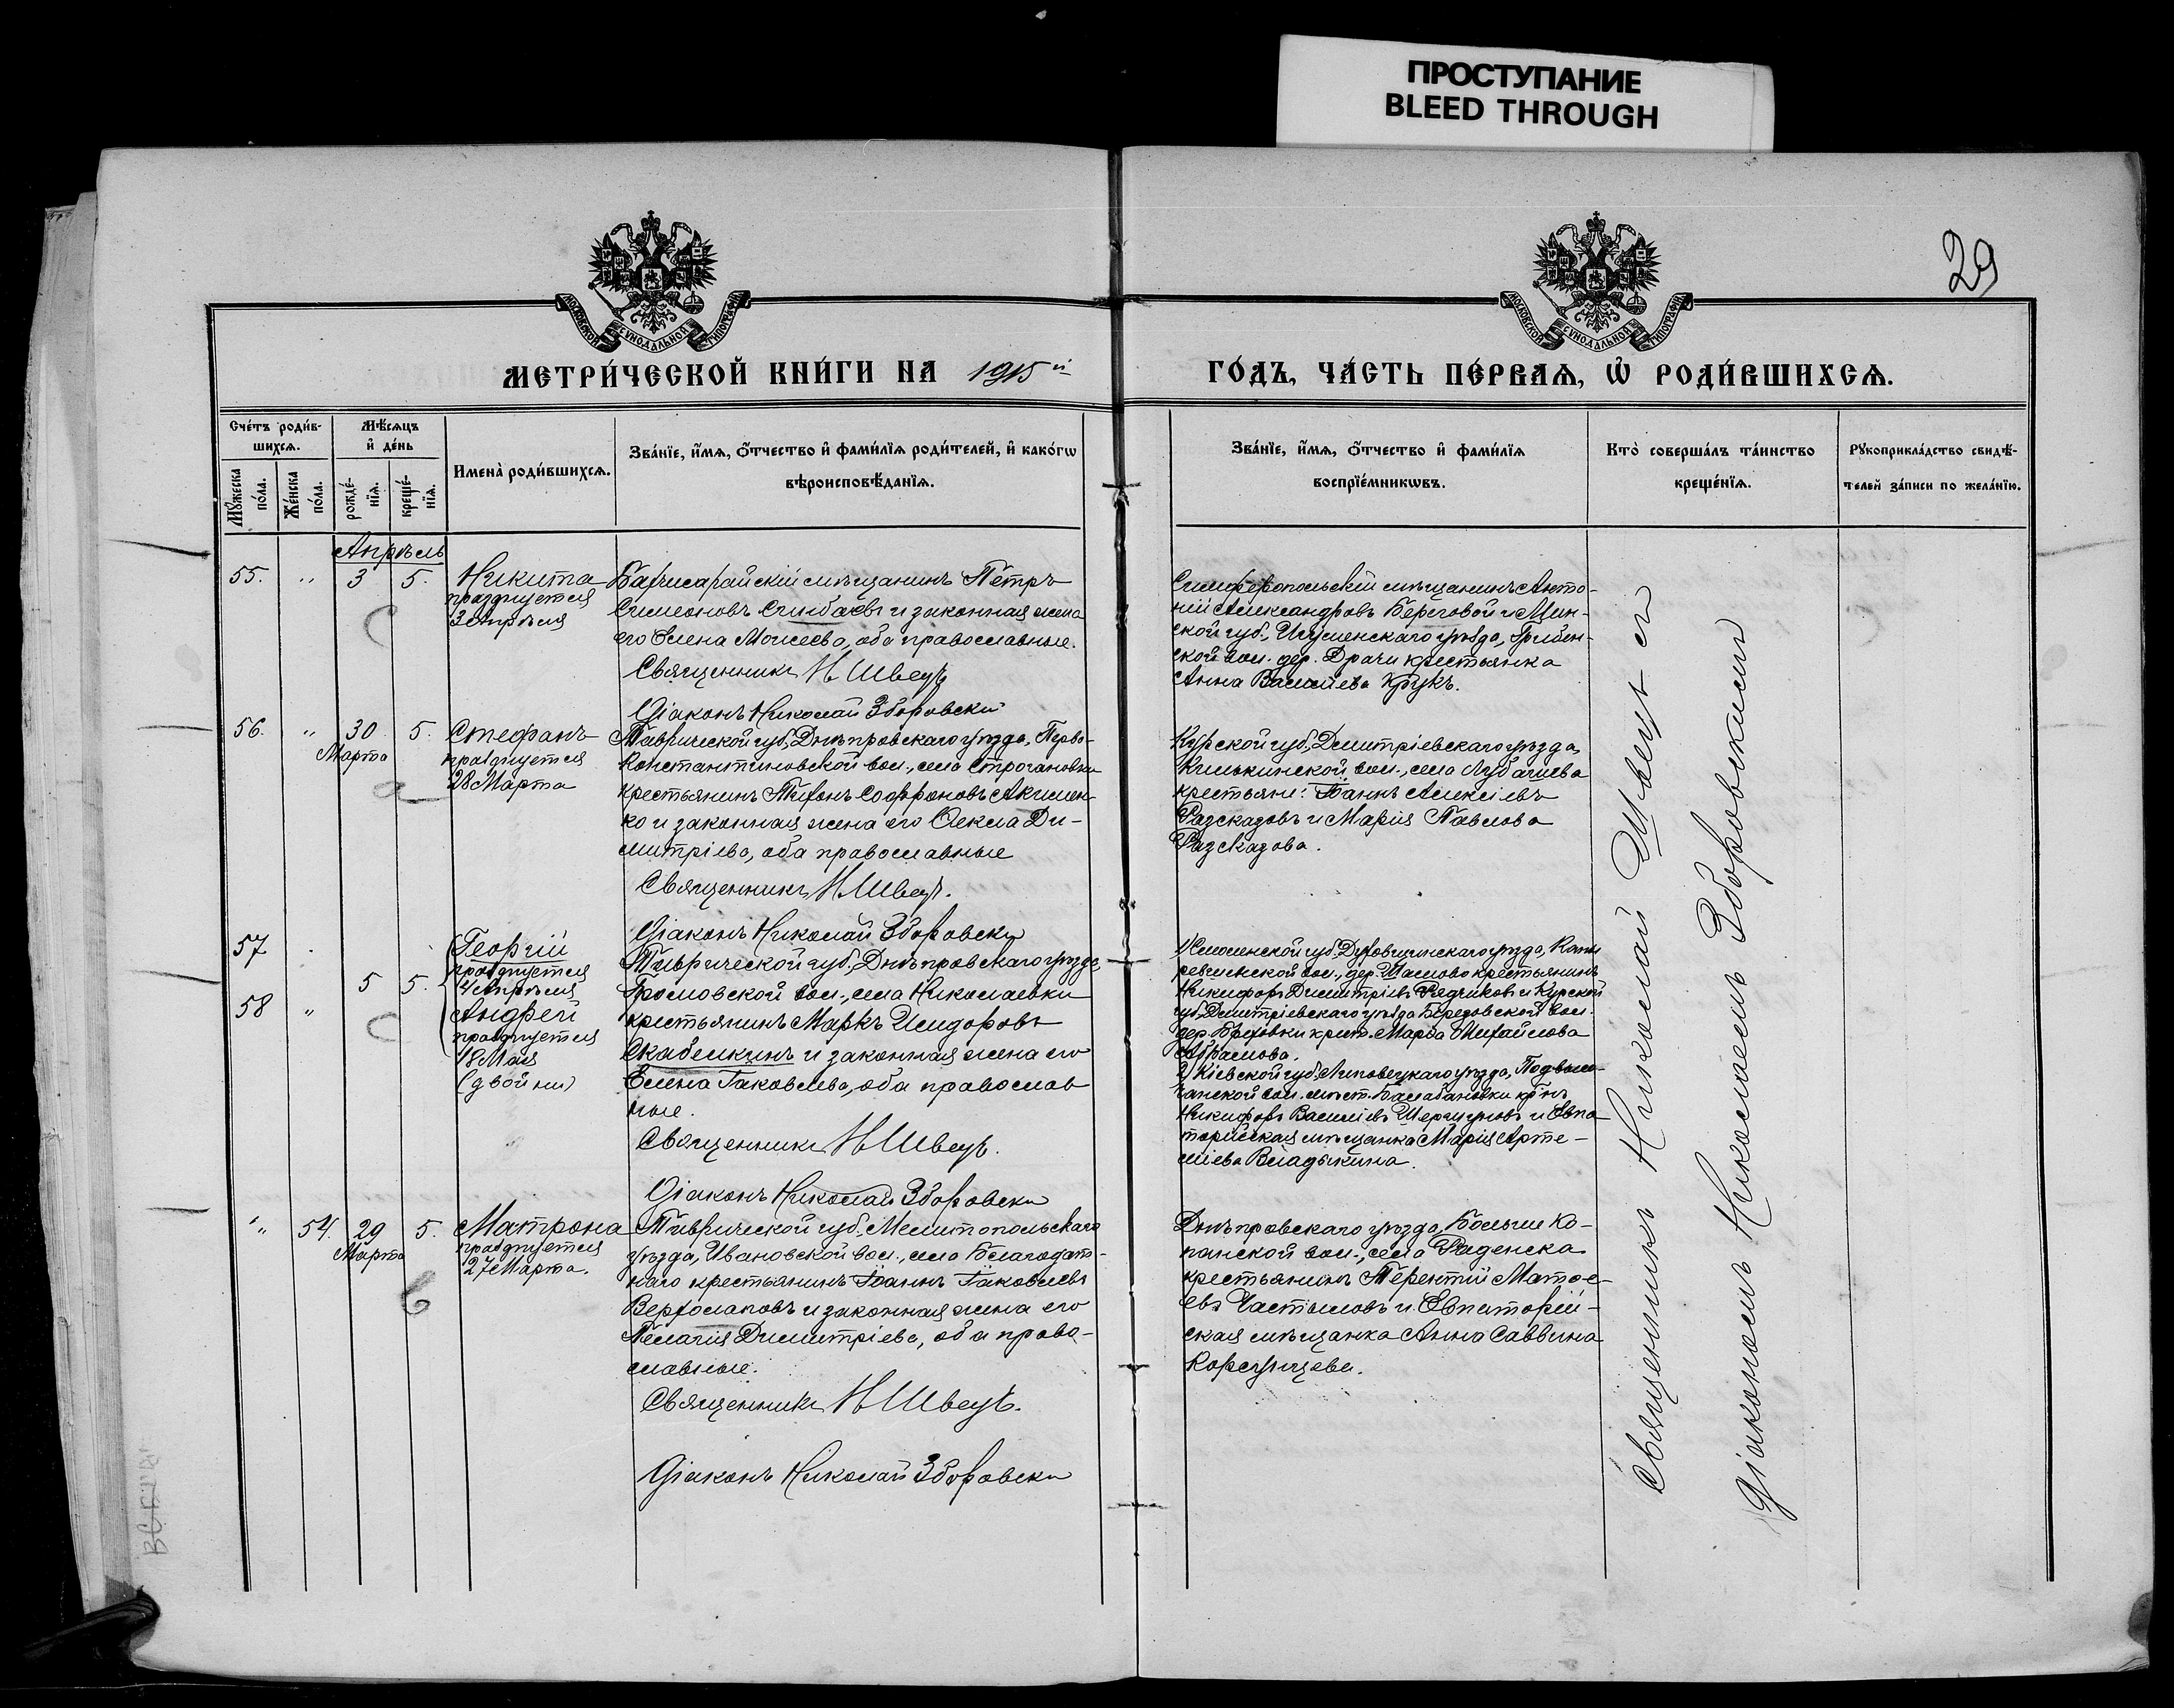 ПРОСТУПАНИЕ
BLEED THROUGH
29
МОСКОВСКОЙ СѴНОДАЛЬНОЙ ТИПОГРАФІИ
МОСКОВСКОЙ СѴНОДАЛЬНОЙ ТИПОГРАФІИ
МЕТРИ́ЧЕСКОЙ КНИ́ГИ НА 1915й
ГО́ДЪ, ЧА́СТЬ ПЕ́РВАѦ, Ѡ҆ РОДИ́ВШИХСѦ.
Сче́тъ роди́в-
шихсѧ.
Мꙋ́жеска
по́ла.
Же́нска
по́ла.
Мѣ́сѧцъ
и҆ де́нь
рожде́-
нїѧ.
креще́-
нїѧ.
Имена̀ роди́вшихсѧ.
Зва́нїе, и҆́мѧ, ѻ҆́тчество и҆ фами́лїѧ роди́телей, и҆ како́гѡ
вѣроисповѣ́данїѧ.
Зва́нїе, и҆́мѧ, ѻ҆́тчество и҆ фами́лїѧ
воспрїе́мникѡвъ.
Кто̀ соверша́лъ та́инство
креще́нїѧ.
Рꙋкоприкла́дство свидѣ́-
телей за́писи по жела́нїю.
Апрѣль
55. " 3 5.
Никита
празднуется
3 Апрѣля
Бахчисарайскій мѣщанинъ Петръ
Симеоновъ Синбаевъ и законная жена
его Елена Моисеева, оба православные.
Священникъ Н Швецъ
Діаконъ Николай Зборовски
Симферопольскій мѣщанинъ Анто-
ній Александровъ Береговой и Мин-
ской губ., Игуменскаго уѣзда,
ской вол. дер. Драчи крестьянка
Анна Васильева Крукъ.
56. " 30 Марта 5.
Стефанъ
празднуется
28 Марта
Таврической губ., Днѣпровскаго уѣзда, Перво-
константиновской вол., села Строгановки
крестьянинъ Тифонъ Софроновъ Акимен-
ко и законная жена его Ѳекла Ди-
митріева, оба православные
Священникъ Н Швецъ.
Діаконъ Николай Зборовски
Курской губ., Димитріевскаго уѣзда,
Килькинской вол., села Лубачиева
крестьяне: Іоаннъ Алексіевъ
Разсказовъ и Марія Павлова
Разсказова.
57
58 "
5 5.
Георгій
празднуется
Апрѣля
Андрей
празднуется
18 Мая
(двойни)
Таврической губ., Днѣпровскаго уѣзда
Громовской вол., села Николаевки
крестьянинъ Маркъ Исидоровъ
Скабелкинъ и законная жена его
Елена Іаковлева, оба православ
ные.
Священникъ Н Швецъ.
Діаконъ Николай Зборовски
1) Смоленской губ., Духовщинскаго уѣзда,
вол., дер. крестьянинъ
Никифоръ Димитріевъ Рядчиковъ и Курской
губ., Димитріевскаго уѣзда Березовской вол.
дер. крест. Марѳа Михайлова
Абрамова.
2) Кіевской губ., Липовецкаго уѣзда, Подвысо-
чанской вол. мѣст. Балабановки кр-нъ
Никифоръ Василіевъ и Евпа
торійская мѣщанка Марія Арте-
міева Владыкина.
" 54. 29 Марта 5.
Матрона
празднуется
27 Марта.
Таврической губ., Мелитопольскаго
уѣзда, Ивановской вол., села Благодат-
наго крестьянинъ Іоаннъ Іаковлевъ
Верхолаповъ и законная жена его
Пелагія Димитріева, оба право-
славные.
Священникъ Н Швецъ.
Діаконъ Николай Зборовски
Днѣпровскаго уѣзда, Больше Ко-
панской вол., села Раденска
крестьянинъ Терентій Матѳе-
евъ Частыловъ и Евпаторій-
ская мѣщанка Анна Саввина
Священникъ Николай Швецъ съ
Діакономъ Николаемъ Зборовскимъ